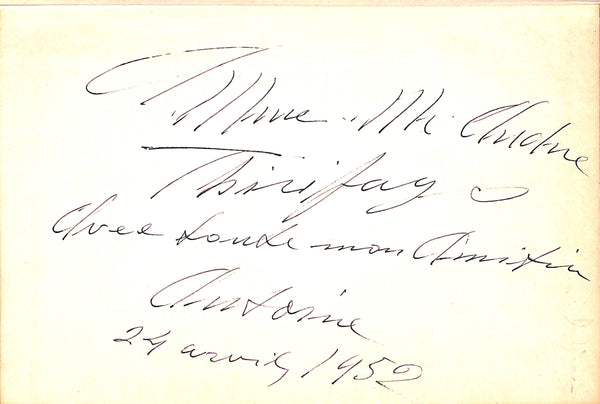 Mme. Mr Andre
Thirifay
Avec toute mon Amitié
Antoine
24 avril 1952